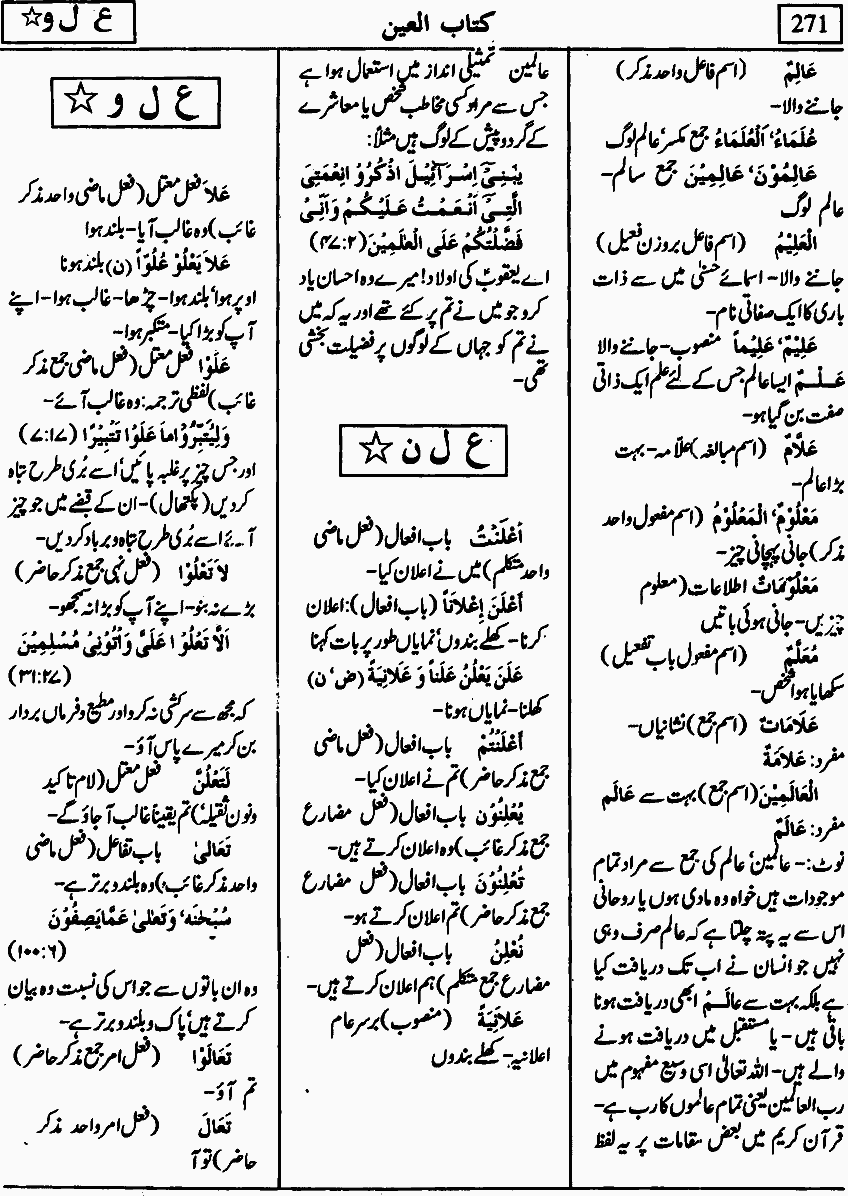 271
کتاب العین
ع ل و ☆
عَالِمٌ (اسم فاعل واحد مذکر)
جاننے والا-
عُلَمَاءُ‘ اَلْعُلَمَاءُ جمع مکسر‘ عالم لوگ
عَالِمُوْنَ‘ عَالِمِیْنَ جمع سالم-
عالم لوگ
الْعَلِیْمُ (اسم فاعل بروزن فعیل)
جاننے والا- اسمائے حسنٰی میں سے ذات
باری کا ایک صفاتی نام-
عَلِیْمٌ‘ عَلِیْماً منصوب- جاننے والا
عَلِــمٌ ایسا عالم جس کے لئے علم ایک ذاتی
صفت بن گیا ہو-
عَلاَّمٌ (اسم مبالغہ) علّامہ- بہت
بڑا عالم-
مَعْلُوْمٌ‘ الْمَعْلُوْمُ (اسم مفعول واحد
مذکر) جانی پہچانی چیز-
مَعْلُوْمَاتٌ اطلاعات (معلوم
چیزیں- جانی ہوئی باتیں
مُعَلَّمٌ (اسم مفعول باب تفعیل)
سکھایا ہوا شخص-
عَلَامَاتٌ (اسم جمع) نشانیاں-
مفرد: عَلَامَةٌ
الْعَالَمِیْنَ (اسم جمع) بہت سے عَالَم
مفرد: عَالَمٌ
نوٹ:- عالمین‘ عالم کی جمع سے مراد تمام
موجودات ہیں خواہ وہ مادی ہوں یا روحانی
اس سے یہ پتہ چلتا ہے کہ عالم صرف وہی
نہیں جو انسان نے اب تک دریافت کیا
ہے بلکہ بہت سے عَالَــمْ ابھی دریافت ہونا
باقی ہیں- یا مستقبل میں دریافت ہونے
والے ہیں- اللہ تعالٰی اسی وسیع مفہوم میں
رب العالمین یعنی تمام عالموں کا رب ہے-
قرآن کریم میں بعض مقامات پر یہ لفظ
عالمین تمثیلی انداز میں استعمال ہوا ہے
جس سے مراد کسی مخاطب شخص یا معاشرے
کے گرد و پیش کے لوگ ہیں مثلاً:
یٰبَنِیْٓ اِسْرَآئِیْلَ اذْکُرُوْ انِعْمَتِیَ
الَّتِیْٓ اَنْعَمْتُ عَلَیْکُمْ وَاَنِّیْ
فَضَّلْتُکُمْ عَلَی الْعٰلَمِیْنَ (۴۷:۲)
اے یعقوبؑ کی اولاد! میرے وہ احسان یاد
کرو جو میں نے تم پر کئے تھے اور یہ کہ میں
نے تم کو جہاں کے لوگوں پر فضیلت بخشی
تھی-
ع ل ن ☆
اَعْلَنْتُ باب افعال (فعل ماضی
واحد متکلم) میں نے اعلان کیا-
اَعْلَنَ اِعْلَاناً (باب افعال): اعلان
کرنا- کھلے بندوں‘ نمایاں طور پر بات کہنا
عَلَنَ یَعْلُنُ عَلَناً وَ عَلَانِیَةً (ض‘ ن)
کھلنا- نمایاں ہونا-
اَعْلَنْتُمْ باب افعال (فعل ماضی
جمع مذکر حاضر) تم نے اعلان کیا-
یُعْلِنُوْن باب افعال (فعل مضارع
جمع مذکر غائب) وہ اعلان کرتے ہیں-
تُعْلِنُوْنَ باب افعال (فعل مضارع
جمع مذکر حاضر) تم اعلان کرتے ہو-
نُعْلِنُ باب افعال (فعل
مضارع جمع متکلم) ہم اعلان کرتے ہیں-
عَلَانِیَةً (منصوب) برسرعام
اعلانیہ- کھلے بندوں
ع ل و ☆
عَلاَ فعل معتل (فعل ماضی واحد مذکر
غائب) وہ غالب آیا- بلند ہوا
عَلاَ یَعْلُوْ عُلُوّاً (ن) بلند ہونا
اوپر ہوا‘ بلند ہوا- چڑھا- غالب ہوا- اپنے
آپ کو بڑا کیا- متکبر ہوا-
عَلَوْا فعل معتل (فعل ماضی جمع مذکر
غائب) لفظی ترجمہ: وہ غالب آئے-
وَلِیُتَبِّرُوْاما عَلَوْا تَتْبِیْرًا (۷:۱۷)
اور جس چیز پر غلبہ پائیں‘ اسے بُری طرح تباہ
کردیں (پکتھال)- ان کے قبضے میں جو چیز
آئے اسے بُری طرح تباہ و برباد کردیں-
لاَ تَعْلُوْا (فعل نہی جمع مذکر حاضر)
بڑے نہ بنو- اپنے آپ کو بڑا نہ سمجھو-
اَلاَّ تَعْلُوْا عَلَیَّ وَاْتُوْنِیْ مُسْلِمِیْنَ
(۳۱:۲۷)
کہ مجھ سے سرکشی نہ کرو اور مطیع و فرماں بردار
بن کر میرے پاس آؤ-
لَتَعْلُنَّ فعل معتل (لام تاکید
و نون ثقیلہ) تم یقیناً غالب آ جاؤ گے-
تَعَالیٰ باب تفاعل (فعل ماضی
واحد مذکر غائب) وہ بلند و برتر ہے-
سُبْحٰنَهٗ وَتَعٰلیٰ عَمَّا یَصِفُوْنَ
(۱۰۰:۶)
وہ ان باتوں سے جو اس کی نسبت وہ بیان
کرتے ہیں‘ پاک و بلند و برتر ہے-
تَعَالَوْا (فعل امر جمع مذکر حاضر)
تم آؤ-
تَعَالَ (فعل امر واحد مذکر
حاضر) تو آ